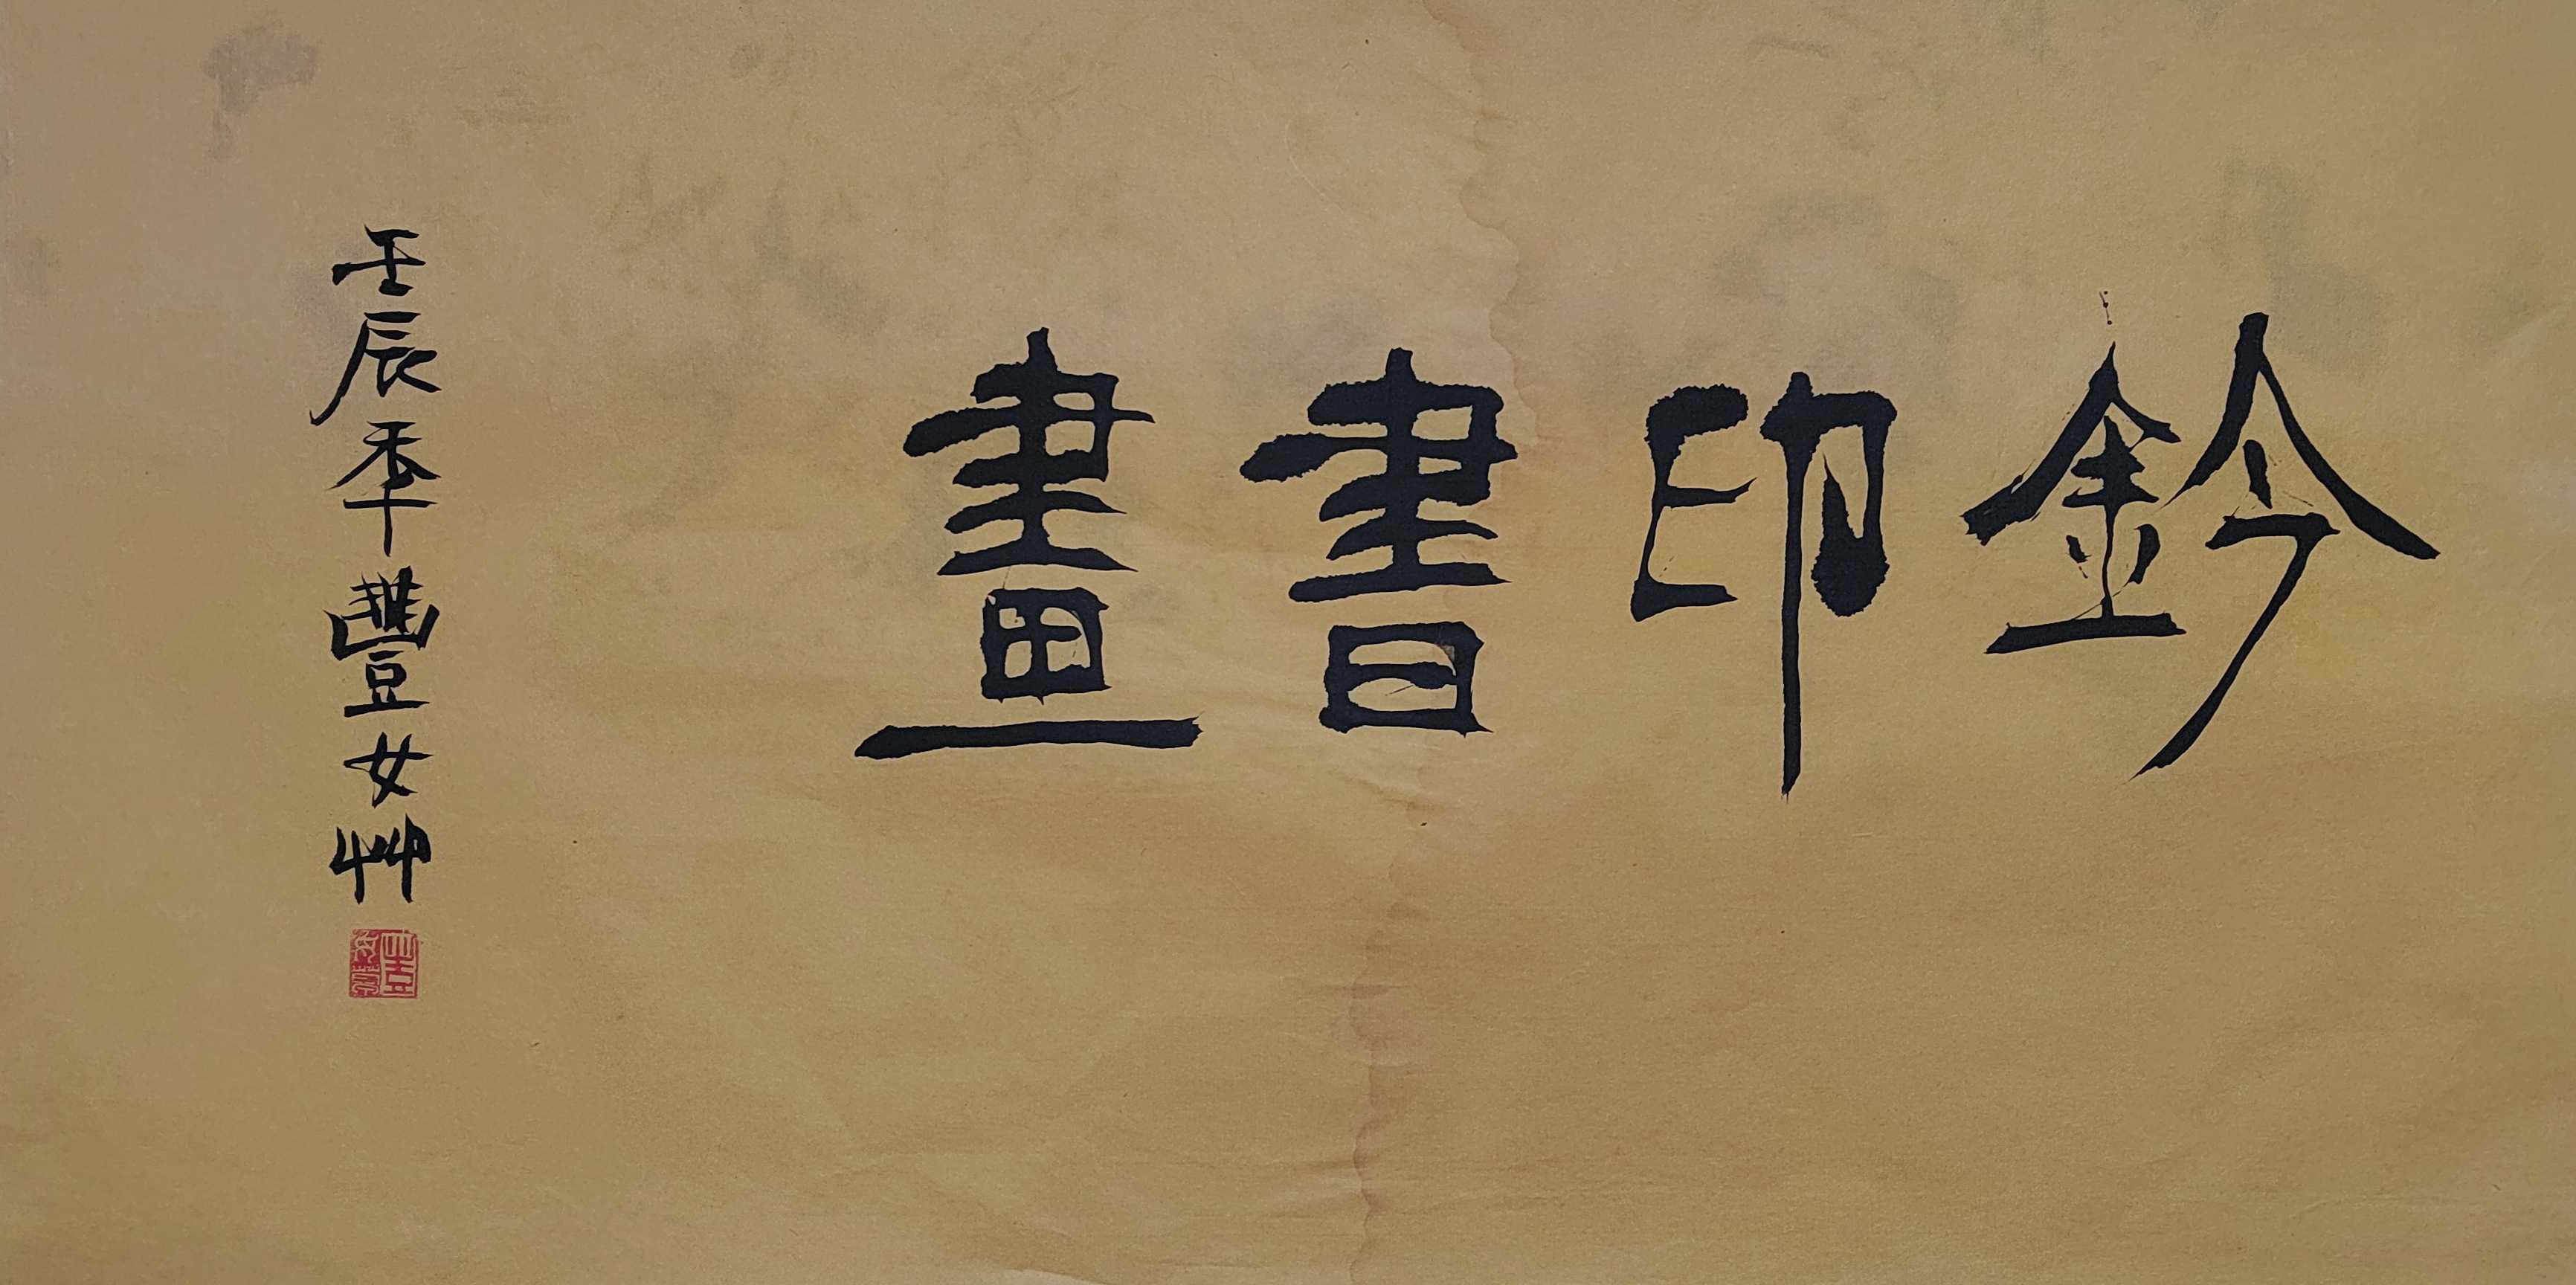 鈐印書畫
壬辰年豐女艸